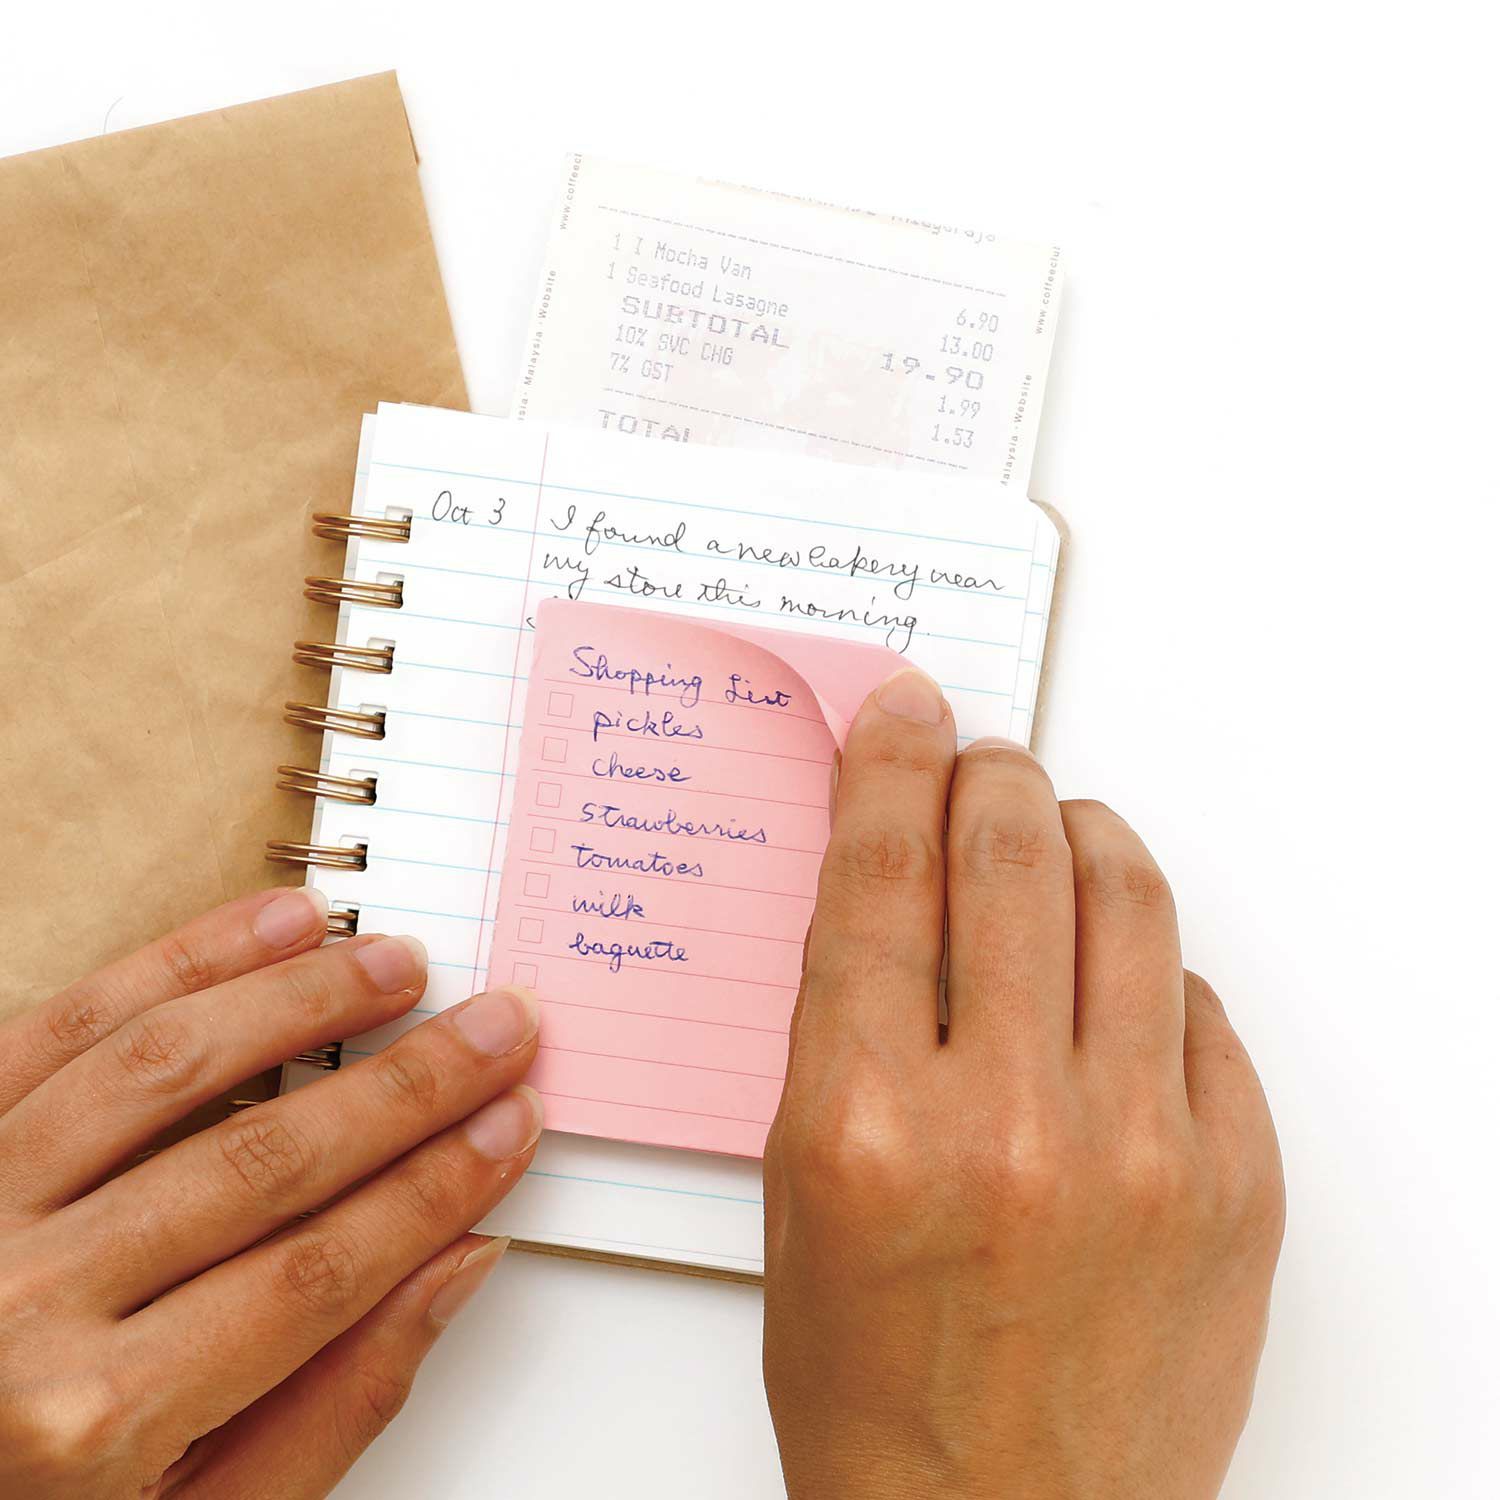 1 I Mocha Van 6.90
1 Seafood Lasagne 13.00
SUBTOTAL 19.90
10% SVC CHG 1.99
7% GST 1.53
TOTAL
www.coffeecl
Malaysia · Website
www.coffeeclu
Malaysia · Website
Oct 3 I found a new bakery near
my store this morning.
Shopping List
pickles
cheese
strawberries
tomatoes
milk
baguette